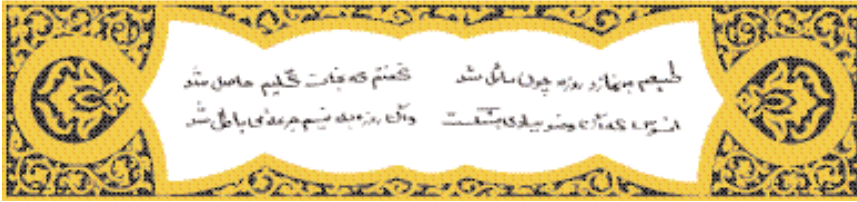 طبعم به نماز و روزه چون مایل شد گفتم که نجات کلیم حاصل شد
افسوس که آن وضو ببادی بشکست وآن روزه به نیم جرعه می باطل شد